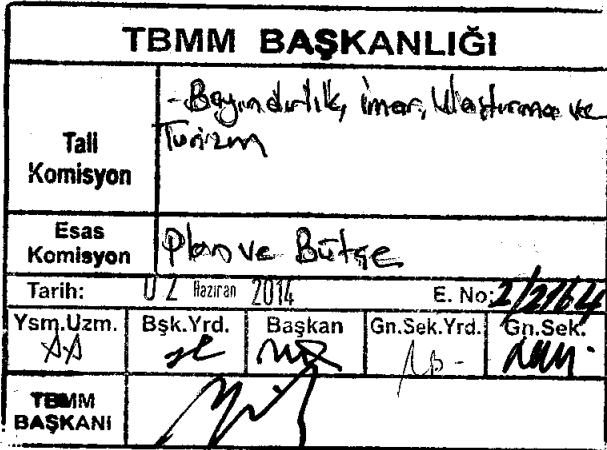 TBMM BAŞKANLIĞI
Tali Komisyon
- Bayındırlık, imar, Ulaştırma ve
Turizm
Esas Komisyon
Plan ve Bütçe
Tarih: 02 Haziran 2014 E. No: 2/2164
Ysm.Uzm. Bşk.Yrd. Başkan Gn.Sek.Yrd. Gn.Sek.
TBMM
BAŞKANI